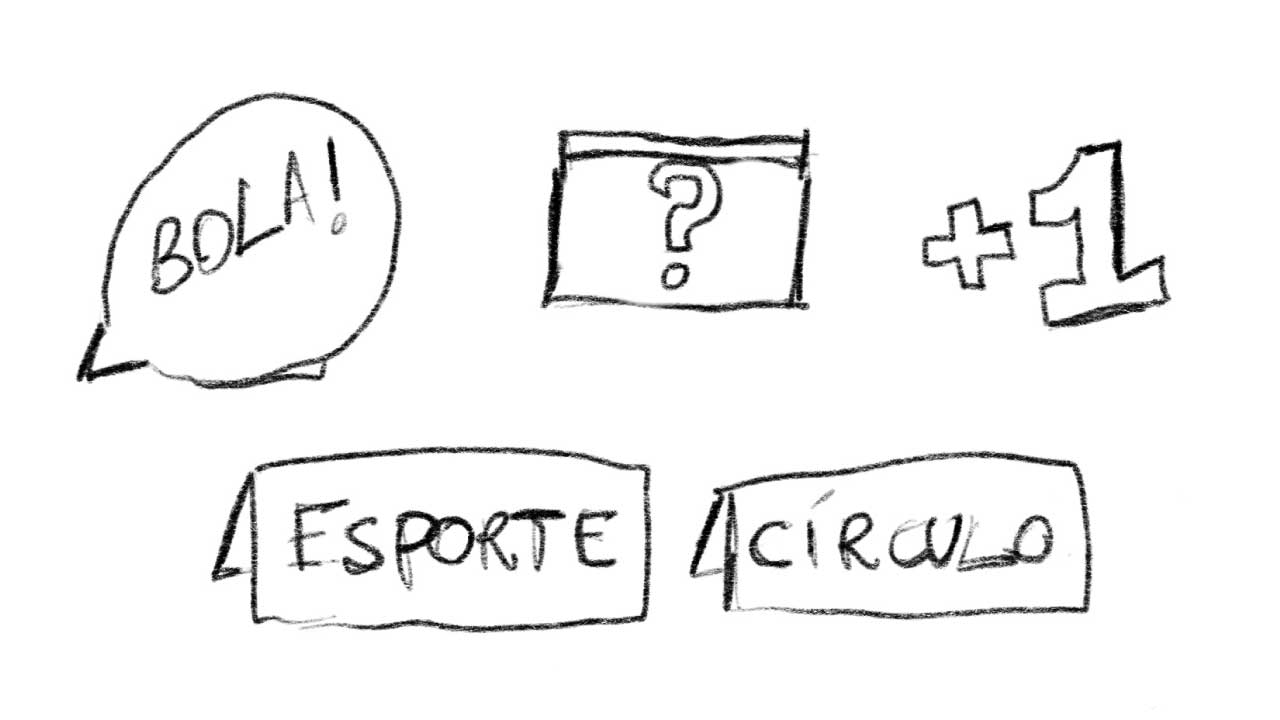 BOLA!
?
+1
ESPORTE
CÍRCULO